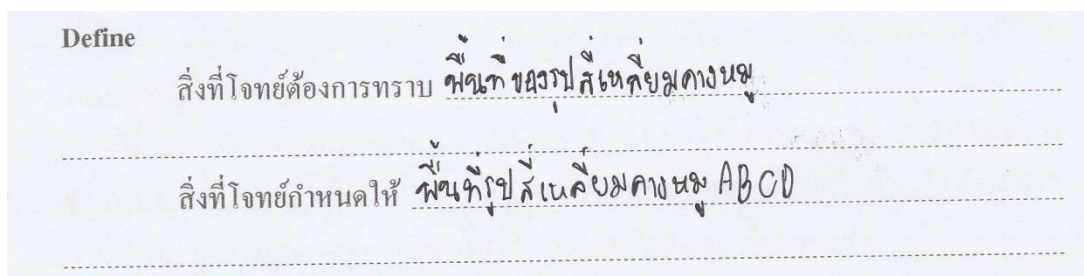 Define
สิ่งที่โจทย์ต้องการทราบ พื้นที่ของรูปสี่เหลี่ยมคางหมู
สิ่งที่โจทย์กำหนดให้ พื้นที่รูปสี่เหลี่ยมคางหมู ABCD